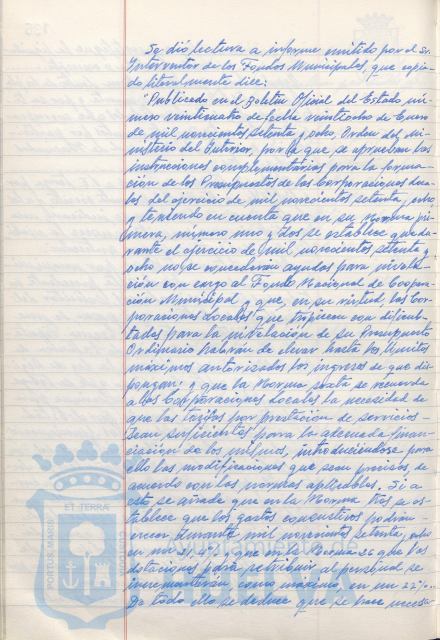 Se dió lectura a informe emitido por el Sr.
Interventor de los Fondos Municipales, que copia-
do literalmente dice:
"Publicado en el Boletín Oficial del Estado nú-
mero veinticuatro de fecha veintiocho de Enero
de mil novecientos setenta y ocho, Orden del mi-
nisterio del Interior, por la que se aprueban las
instrucciones complementarias para la forma-
ción de los Presupuestos de las Corporaciones Loca-
les del ejercicio de mil novecientos setenta y ocho
y teniendo en cuenta que en su Norma pri-
mera, número uno y dos se establece que du-
rante el ejercicio de mil novecientos setenta y
ocho no se concederán ayudas para nivela-
ción con cargo al Fondo Nacional de Coopera-
ción Municipal y que, en su virtud, las Cor-
poraciones Locales que tropiecen con dificul-
tades para la nivelación de su Presupuesto
Ordinario habrán de elevar hasta los límites
máximos autorizados los ingresos de que dis-
pongan; y que la Norma sexta se recuerda
a las Corporaciones Locales la necesidad de
que las tarifas por prestación de servicios
sean suficientes para la adecuada finan-
ciación de los mismos, introduciéndose para
ello las modificaciones que sean precisas de
acuerdo con las normas aplicables. Si a
esto se añade que en la Norma tres se es-
tablece que los gastos consuntivos podrán
crecer durante mil novecientos setenta y ocho
en un 21,4% y que en la Norma 26 que las
dotaciones para retribuir al personal se
incrementarán como máximo, en un 22%.
De todo ello se deduce que se hace necesa-
ET TERRA
PORTUS MARIS
CUSTODIT
HUELVA